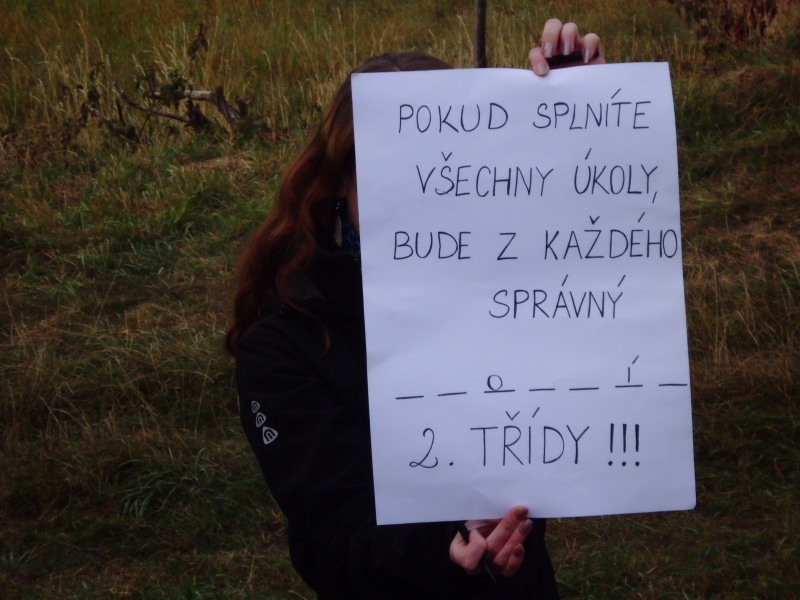 POKUD SPLNÍTE
VŠECHNY ÚKOLY,
BUDE Z KAŽDÉHO
SPRÁVNÝ
_ _ O _ _ Í _
2. TŘÍDY !!!